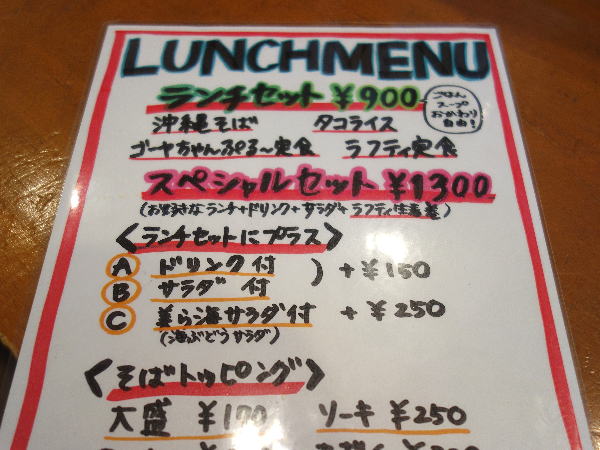 LUNCHMENU
ランチセット ¥900
ごはん
スープ
おかわり
自由!
沖縄そば タコライス
ゴーヤちゃんぷる〜定食 ラフティ定食
スペシャルセット ¥1300
(お好きなランチ+ドリンク+サラダ+ラフティ生春巻)
<ランチセットにプラス>
A ドリンク付
B サラダ 付 ) +¥150
C 美ら海サラダ付 +¥250
(海ぶどうサラダ)
<そばトッピング>
大盛 ¥100 ソーキ ¥250